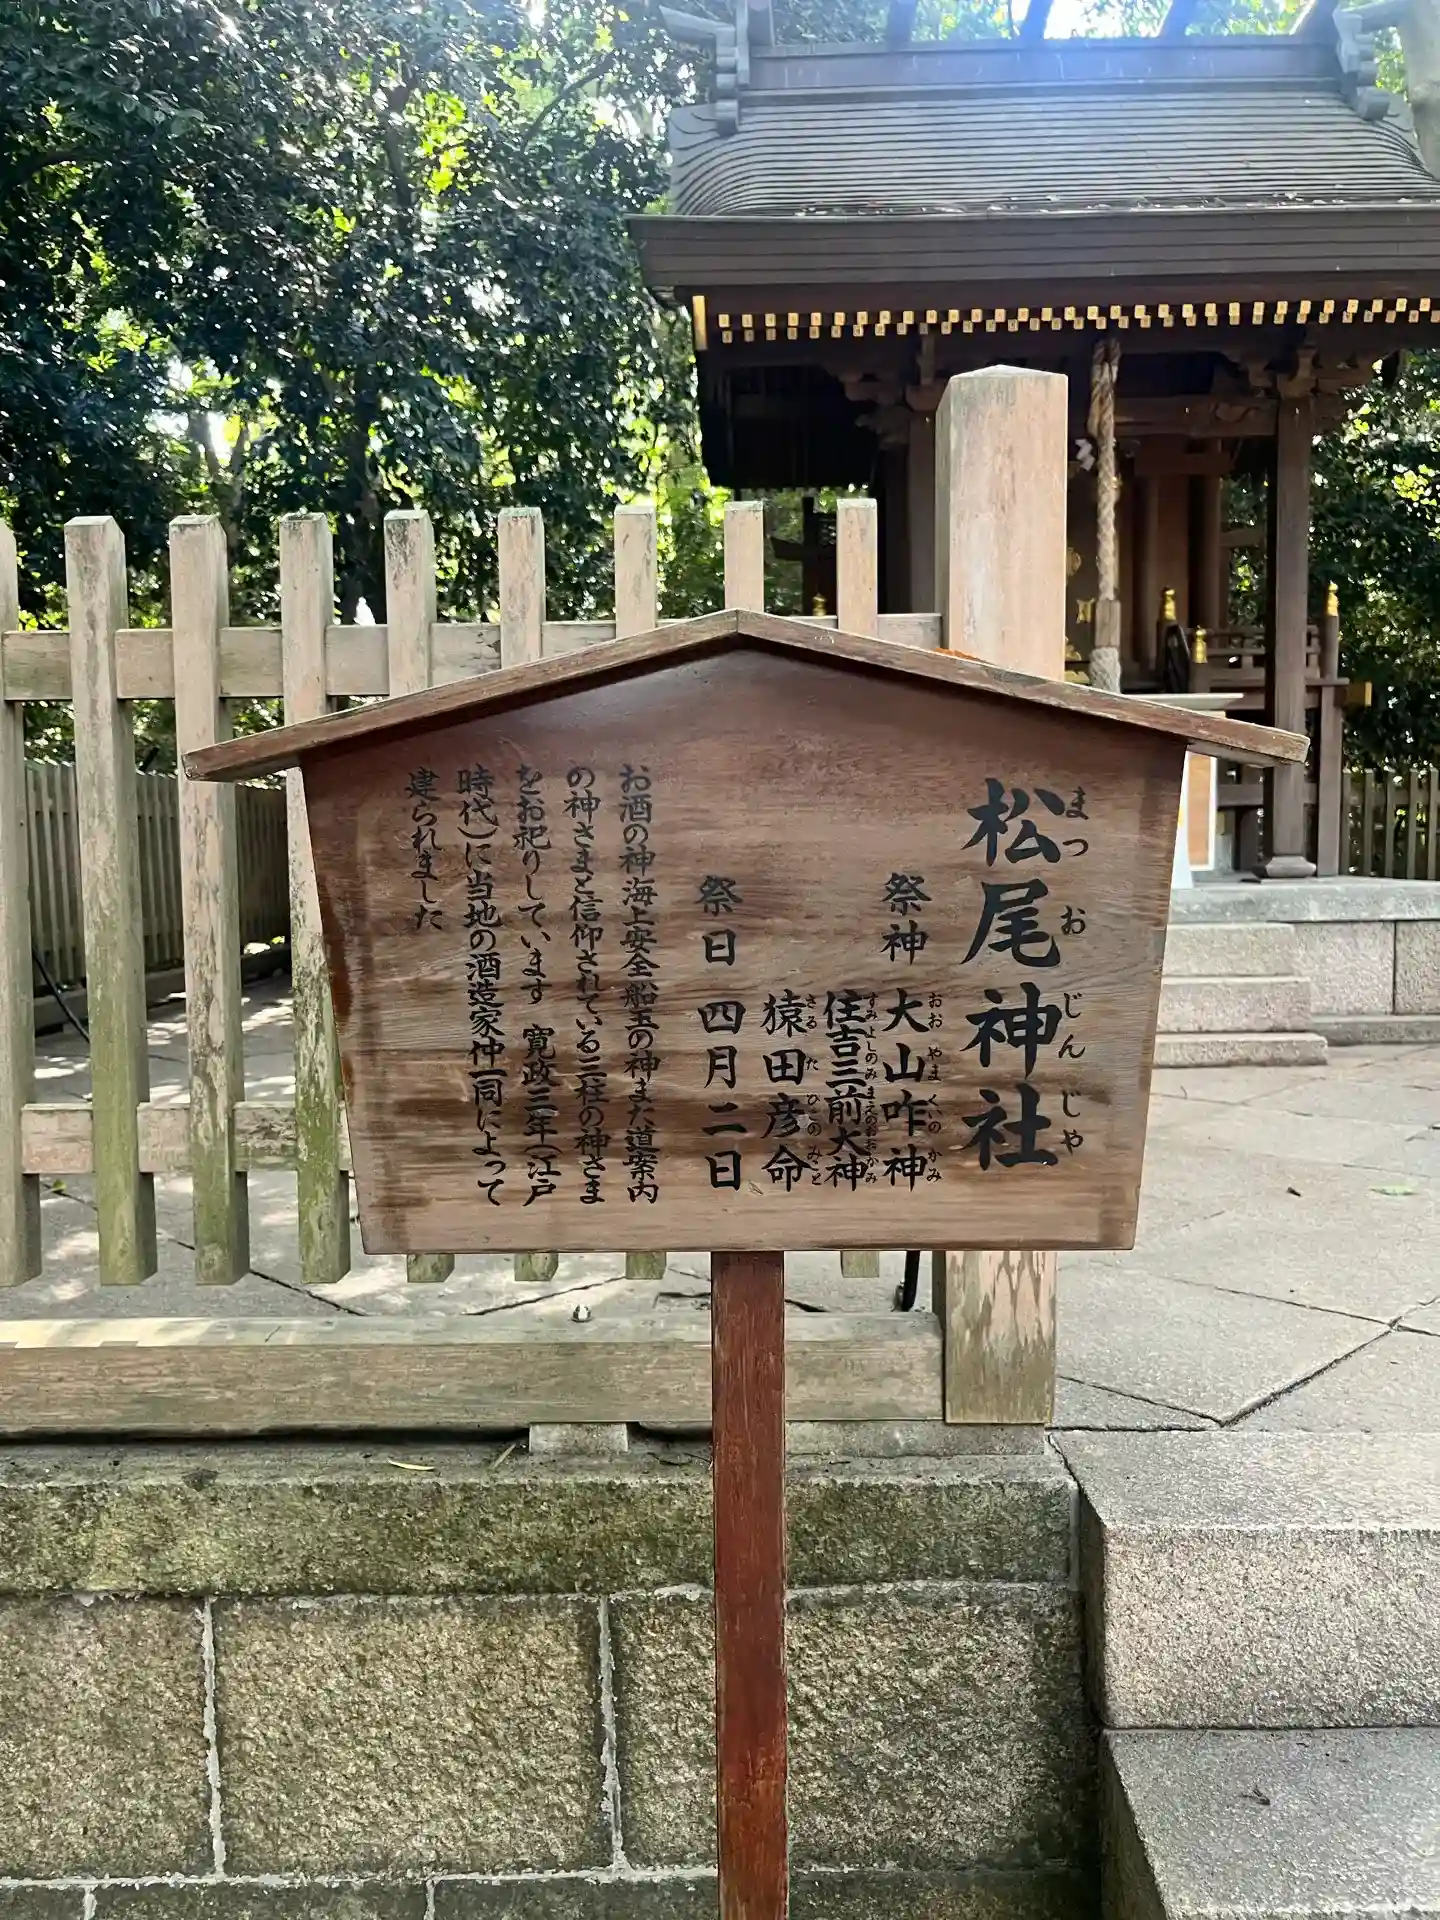 松尾神社
まつおじんじゃ
祭神 大山咋神
おおやまくいのかみ
住吉三前大神
すみよしのみまえのおおかみ
猿田彦命
さるたひこのみこと
祭日 四月二日
お酒の神海上安全船玉の神また道案内
の神さまと信仰されている三柱の神さま
をお祀りしています 寛政三年(江戸
時代)に当地の酒造家仲一同によって
建られました